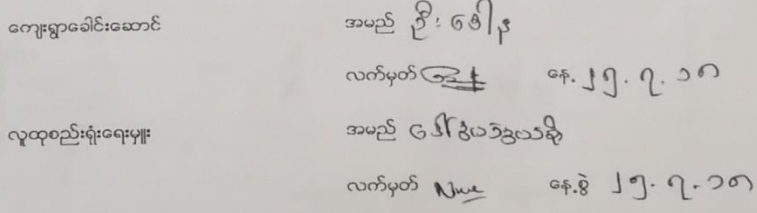 ကျေးရွာခေါင်းဆောင် အမည် ဦး
လက်မှတ် နေ့. ၂၅.၇.၁၈
လူထုစည်းရုံးရေးမှူး အမည် ဒေါ်
လက်မှတ် Nwe နေ့.စွဲ ၂၅.၇.၁၈